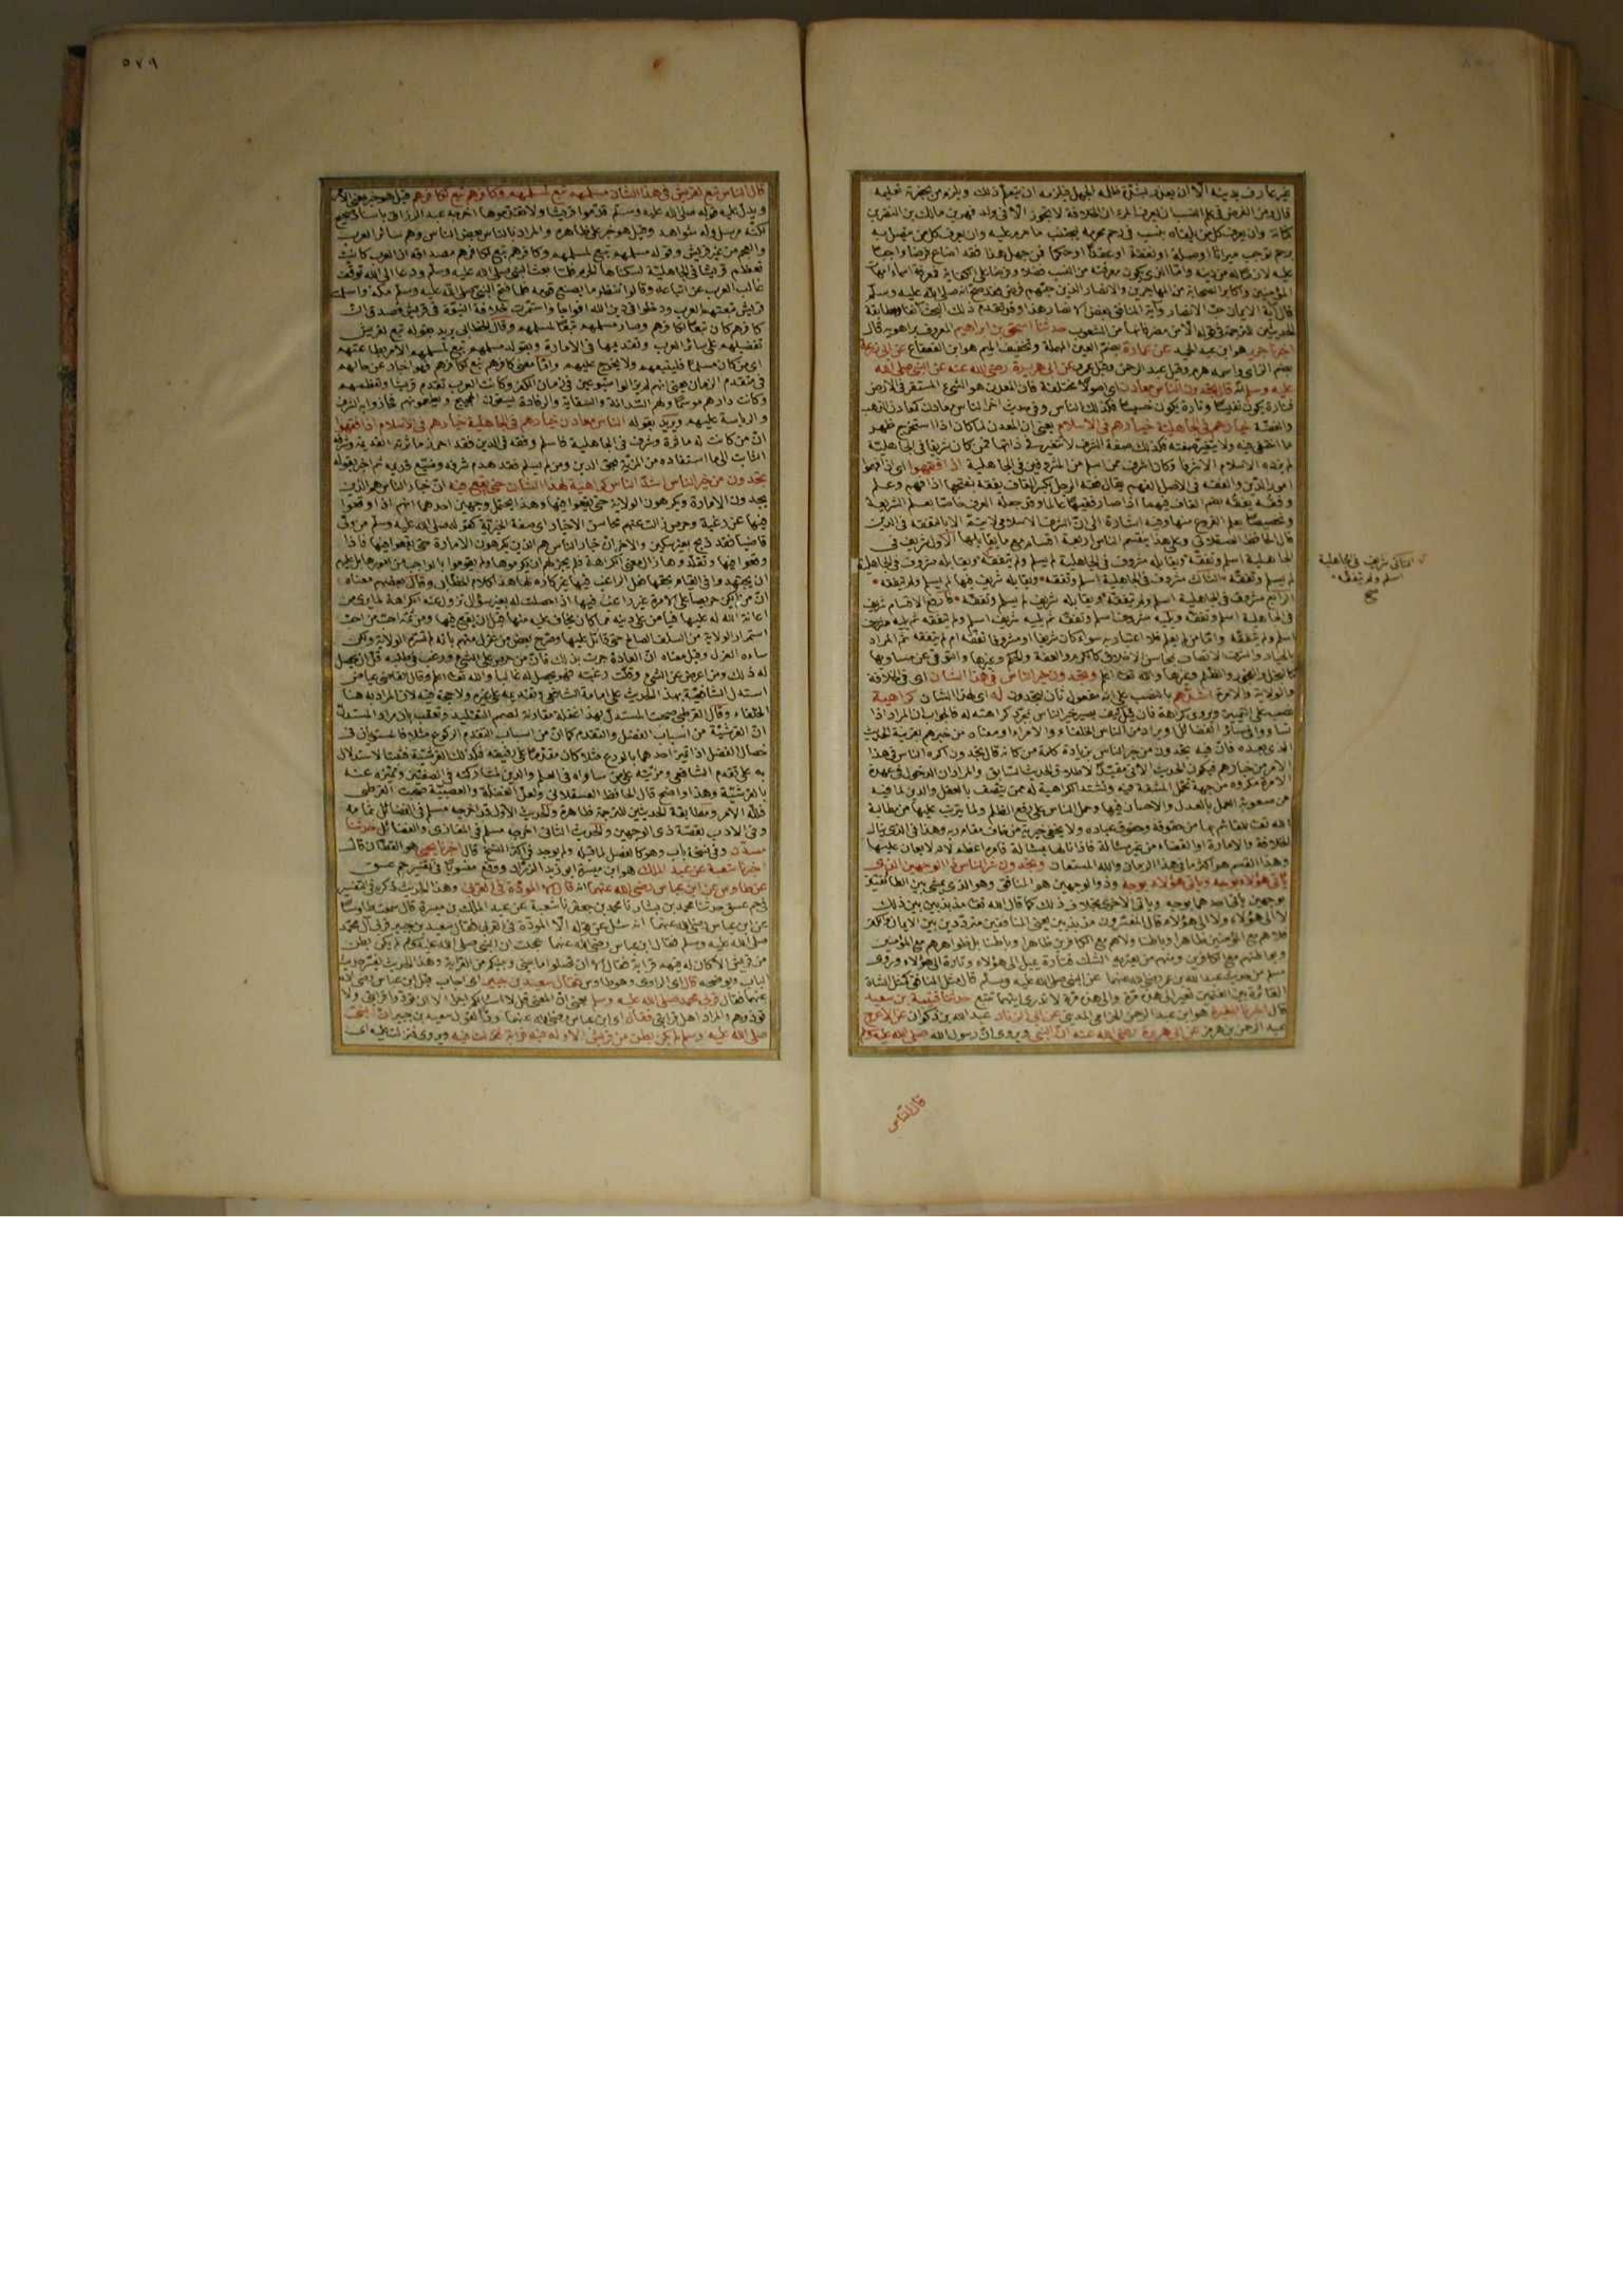 غير عارف بدينه الا ان يعلم بشدة ظلمة الجهل فيلزمه ان يتعلم ذلك ويلزم من بحضرته تعليمه
قال ومن الفرض في علم النسب ان يعرف المرء ان الخلافة لا يجوز الا في ولد فهر بن مالك بن النضر بن
كنانة وان يعرف كل من يلقاه بنسب في رحم محرمة ليجتنب ما حرم عليه وان يعرف كل من يتصل به
برحم توجب ميراثا او صلة او نفقة او عقدا او حكما فمن جهل هذا فقد اضاع فرضا واجبا
عليه لازما له من دينه واما الذي يكون معرفته من النسب فضلا وفرضا على الكفاية فمعرفة اسماء امهات
المؤمنين واكابر الصحابة من المهاجرين والانصار الذين حبهم فرض
قال آية الايمان حب الانصار وآية المنافق بغض الانصار هذا وقد تقدم ذلك البحث آنفا ومطابقة
الحديثين للترجمة في قوله الا من مضر فانها من الشعوب حدثنا اسحق بن ابراهيم المعروف براهويه قال
اخبرنا جرير هو ابن عبد الحميد عن عمارة بضم العين المهملة وتخفيف الميم هو ابن القعقاع عن ابي زرعة
بضم الزاي واسمه هرم وقيل عبد الرحمن وقيل عمرو عن ابي هريرة رضي الله عنه عن النبي صلى الله
عليه وسلم انه قال تجدون الناس معادن اي اصولا مختلفة فان المعدن هو الشيء المستقر في الارض
فتارة يكون نفيسا وتارة يكون خسيسا فكذلك الناس وفي حديث آخر الناس معادن كمعادن الذهب
والفضة خيارهم في الجاهلية خيارهم في الاسلام يعني ان المعدن لما كان اذا استخرج ظهر
ما اختفى فيه ولا يتغير صفته فكذلك صفة الشرف لا تتغير في ذاتها فمن كان شريفا في الجاهلية
لم يزده الاسلام الا شرفا وكان اشرف ممن اسلم من المشروفين في الجاهلية اذا فقهوا اي اذا فهموا
امور الدين والفقه في الاصل الفهم يقال فقه الرجل بكسر القاف يفقه بفتحها اذا فهم وعلم
وفقه يفقه بضم القاف فيهما اذا صار فقيها عالما وقد جعله العرف خاصا بعلم الشريعة
وتخصيصا بعلم الفروع منها وفيه اشارة الى ان الشرف الاسلامي لا يتم الا بالتفقه في الدين
قال الحافظ العسقلاني وعلى هذا ينقسم الناس اربعة اقسام مع ما يقابلها الاول شريف في
الجاهلية اسلم وتفقه ويقابله مشروف في الجاهلية لم يسلم ولم يتفقه ويقابله مشروف في الجاهلية
لم يسلم وتفقه الثالث مشروف في الجاهلية اسلم وتفقه ويقابله شريف فيها لم يسلم ولم يتفقه
الرابع مشروف في الجاهلية اسلم ولم يتفقه ويقابله شريف لم يسلم وتفقه فارفع الاقسام شريف
في الجاهلية اسلم وتفقه ويليه مشروف اسلم وتفقه ثم يليه شريف اسلم ولم يتفقه ثم يليه مشروف
اسلم ولم يتفقه واما من لم يسلم فلا اعتبار به سواء كان شريفا او مشروفا تفقه ام لم يتفقه ثم المراد
بالخيار والشرف الاتصاف بمحاسن الاخلاق كالكرم والعفة والحلم وغيرها والتوقي عن مساويها
كالبخل والفجور والظلم وغيرها والله تعالى اعلم وتجدون خير الناس في هذا الشان اي في الخلافة
والولاية والامرة اشدهم بالنصب على انه مفعول ثان لتجدون له اي لهذا الشان كراهية
نصب على التمييز ويروى كراهة فان قيل كيف يصير خير الناس بمجرد كراهته له فالجواب ان المراد اذا
تساووا في سائر الفضائل او يراد من الناس الخلفاء والامراء او معناه من خيرهم بقرينة الحديث
الذي بعده فان فيه تجدون من خير الناس بزيادة كلمة من كانه قال تجدون اكره الناس في هذا
الامر من خيارهم فيكون الحديث الاتي مقيدا لاطلاق الحديث السابق والمراد ان الدخول في عهدة
الامرة مكروه من جهة تحمل المشقة فيه وتشتد الكراهية له ممن يتصف بالعقل والدين لما فيه
من صعوبة العمل بالعدل والاحسان فيها وحمل الناس على رفع الظلم ولما يترتب عليها من مطالبة
الله تعالى للقائم بها من حقوقه وحقوق عباده ولا يخفى خيرية من خاف مقام ربه وهذا في الذي ينال
الخلافة والامارة او القضاء من غير مسألة فاذا نالها بمسألة فامره اعظم لانه لا يعان عليها
وهذا القسم هو اكثر ما في هذا الزمان والله المستعان وتجدون شر الناس ذا الوجهين الذي
يأتي هؤلاء بوجه ويأتي هؤلاء بوجه وذو الوجهين هو المنافق وهو الذي يمشي بين الطائفتين
بوجهين يأتي احدهما بوجه ويأتي الاخرى بخلاف ذلك كما قال الله تعالى مذبذبين بين ذلك
لا الى هؤلاء ولا الى هؤلاء قال المفسرون مذبذبين يعني المنافقين مترددين بين الايمان والكفر
فلا هم مع المؤمنين ظاهرا وباطنا ولا هم مع الكافرين ظاهرا وباطنا بل ظواهرهم مع المؤمنين
وبواطنهم مع الكافرين ومنهم من يعتريه الشك فتارة يميل الى هؤلاء وتارة الى هؤلاء وروى
مسلم من حديث عبد الله بن عمر رضي الله عنهما عن النبي صلى الله عليه وسلم قال مثل المنافق كمثل الشاة
العائرة بين الغنمين تعير الى هذه مرة والى هذه مرة لا تدري ايتهما تتبع حدثنا قتيبة بن سعيد
قال اخبرنا المغيرة هو ابن عبد الرحمن الحزامي المدني عن ابي الزناد عبد الله بن ذكوان عن الاعرج
عبد الرحمن بن هرمز عن ابي هريرة رضي الله عنه ان النبي ويروى ان رسول الله صلى الله عليه وسلم
الثاني شريف في الجاهلية
اسلم ولم يتفقه
صح
قال الناس
٥٧٩
قال الناس تبع لقريش في هذا الشان مسلمهم تبع لمسلمهم وكافرهم تبع لكافرهم قيل هو خبر بمعنى الامر
ويدل عليه قوله صلى الله عليه وسلم قدموا قريشا ولا تقدموها اخرجه عبد الرزاق باسناد صحيح
لكنه مرسل وله شواهد وقيل هو خبر على ظاهره والمراد بالناس بعض الناس وهم سائر العرب
والعجم من غير قريش وقوله مسلمهم تبع لمسلمهم وكافرهم تبع لكافرهم مصداقه ان العرب كانت
تعظم قريشا في الجاهلية لسكناها الحرم فلما بعث النبي صلى الله عليه وسلم ودعا الى الله توقف
غالب العرب عن اتباعه وقالوا ننظر ما يصنع قومه فلما فتح النبي صلى الله عليه وسلم مكة واسلمت
قريش تبعتهم العرب ودخلوا في دين الله افواجا واستمرت خلافة النبوة في قريش فصدق ان
كافرهم كان تبعا لكافرهم وصار مسلمهم تبعا لمسلمهم وقال الخطابي يريد بقوله تبع لقريش
تفضيلهم على سائر العرب وتقديمها في الامارة وبقوله مسلمهم تبع لمسلمهم الامر بطاعتهم
اي من كان مسلما فليتبعهم ولا يخرج عليهم واما معنى كافرهم تبع لكافرهم فهو اخبار عن حالهم
في متقدم الزمان يعني انهم لم يزالوا متبوعين في زمان الكفر وكانت العرب تقدم قريشا وتعظمهم
وكانت دارهم موسما ولهم السدانة والسقاية والرفادة يسقون الحجيج ويطعمونهم فحازوا به الشرف
والرياسة عليهم ويريد بقوله الناس معادن خيارهم في الجاهلية خيارهم في الاسلام اذا فقهوا
ان من كانت له مأثرة وشرف في الجاهلية فاسلم وفقه في الدين فقد احرز مأثرته القديمة وشرفه
الثابت الى ما استفاده من المزية بحق الدين ومن لم يسلم فقد هدم شرفه وضيع قديمه ثم اخبر بقوله
تجدون من خير الناس اشد الناس كراهية لهذا الشان حتى يقع فيه ان خيار الناس هم الذين
يجدون الامارة ويكرهون الولاية حتى يقعوا فيها وهذا يحتمل وجهين احدهما انهم اذا وقعوا
فيها عن رغبة وحرص زالت عنهم محاسن الاخيار اي صفة الخيرية كقوله صلى الله عليه وسلم من ولي
قاضيا فقد ذبح بغير سكين والاخر ان خيار الناس هم الذين يكرهون الامارة حتى يقعوا فيها فاذا
وقعوا فيها وتقلدوها زال معنى الكراهة فلم يجز لهم ان يكرهوها ولم يقوموا بالواجب من امورها بل عليهم
ان يجتهدوا في القيام بحقها فعل الراغب فيها غير كاره لها هذا كلام الخطابي وقال بعضهم معناه
ان من لم يكن حريصا على الامرة غير راغب فيها اذا حصلت له بغير سؤال تزول عنه الكراهة لما يرى من
اعانة الله له عليها فيأمن على دينه مما كان يخاف عليه منها قبل ان يقع فيها ومن ثمه احب من احب
استمرار الولاية من السلف الصالح حتى قاتل عليها وصرح بعض من عزل منهم بانه لم تسره الولاية ولكن
ساءه العزل وقيل معناه ان العادة جرت بذلك فان من حرص على الشيء ورغب في طلبه قل ان يحصل
له ذلك ومن اعرض عن الشيء وقلت رغبته فهو يحصل له غالبا والله تعالى اعلم وقال القاضي عياض
استدل الشافعية بهذا الحديث على امامة الشافعي وتقديمه على غيره ولا حجة فيه لان المراد به هنا
الخلفاء وقال القرطبي صحبت المستدل بهذا غفلة مقارنة لصميم التقليد وتعقب بان مراد المستدل
ان القرشية من اسباب الفضل والتقدم كما ان من اسباب التقدم الورع مثلا فالمستويان في
خصال الفضل اذا تميز احدهما بالورع مثلا كان مقدما على رفيقه فكذلك القرشية فثبت الاستدلال
به على تقدم الشافعي ومزيته على من ساواه في العلم والدين لمشاركته في الصفتين وتميزه عنه
بالقرشية وهذا واضح قال الحافظ العسقلاني ولعل الغفلة والعصبية صحبت القرطبي
فلله الامر ومطابقة الحديثين للترجمة ظاهرة والحديث الاول قد اخرجه مسلم في الفضائل بتمامه
وفي الادب بقصة ذي الوجهين والحديث الثاني اخرجه مسلم في المغازي والفضائل حدثنا
مسدد وفي نسخة باب وهو كالفصل لما قبله ولم يوجد في اكثر النسخ قال اخبرنا يحيى هو القطان قال
اخبرنا شعبة عن عبد الملك هو ابن ميسرة ابو زيد الزراد ووقع منسوبا في تفسير حم عسق
عن طاوس عن ابن عباس رضي الله عنهما انه قال الا المودة في القربى وهذا الحديث ذكره في التفسير
في حم عسق حدثنا محمد بن بشار نا محمد بن جعفر نا شعبة عن عبد الملك بن ميسرة قال سمعت طاوسا
عن ابن عباس رضي الله عنهما انه سئل عن قوله الا المودة في القربى فقال سعيد بن جبير قربى آل محمد
صلى الله عليه وسلم فقال ابن عباس رضي الله عنهما عجلت ان النبي صلى الله عليه وسلم لم يكن بطن
من قريش الا كان له فيهم قرابة فقال الا ان تصلوا ما بيني وبينكم من القرابة وهذا الحديث يفسر حديث
الباب ويوضحه قال اي الراوي وهو طاوس فقال سعيد بن جبير اي اجاب قبل ابن عباس رضي الله
عنهما فقال قربى محمد صلى الله عليه وسلم يعني ان المعنى قل لا اسألكم اجرا الا ان تودوا قرابتي ولا
تؤذوهم والمراد اهل قرابتي فقال اي ابن عباس رضي الله عنهما ردا لقول سعيد بن جبير ان النبي
صلى الله عليه وسلم لم يكن بطن من قريش الا وله فيه قرابة فنزلت فيه ويروى فنزلت عليه اي